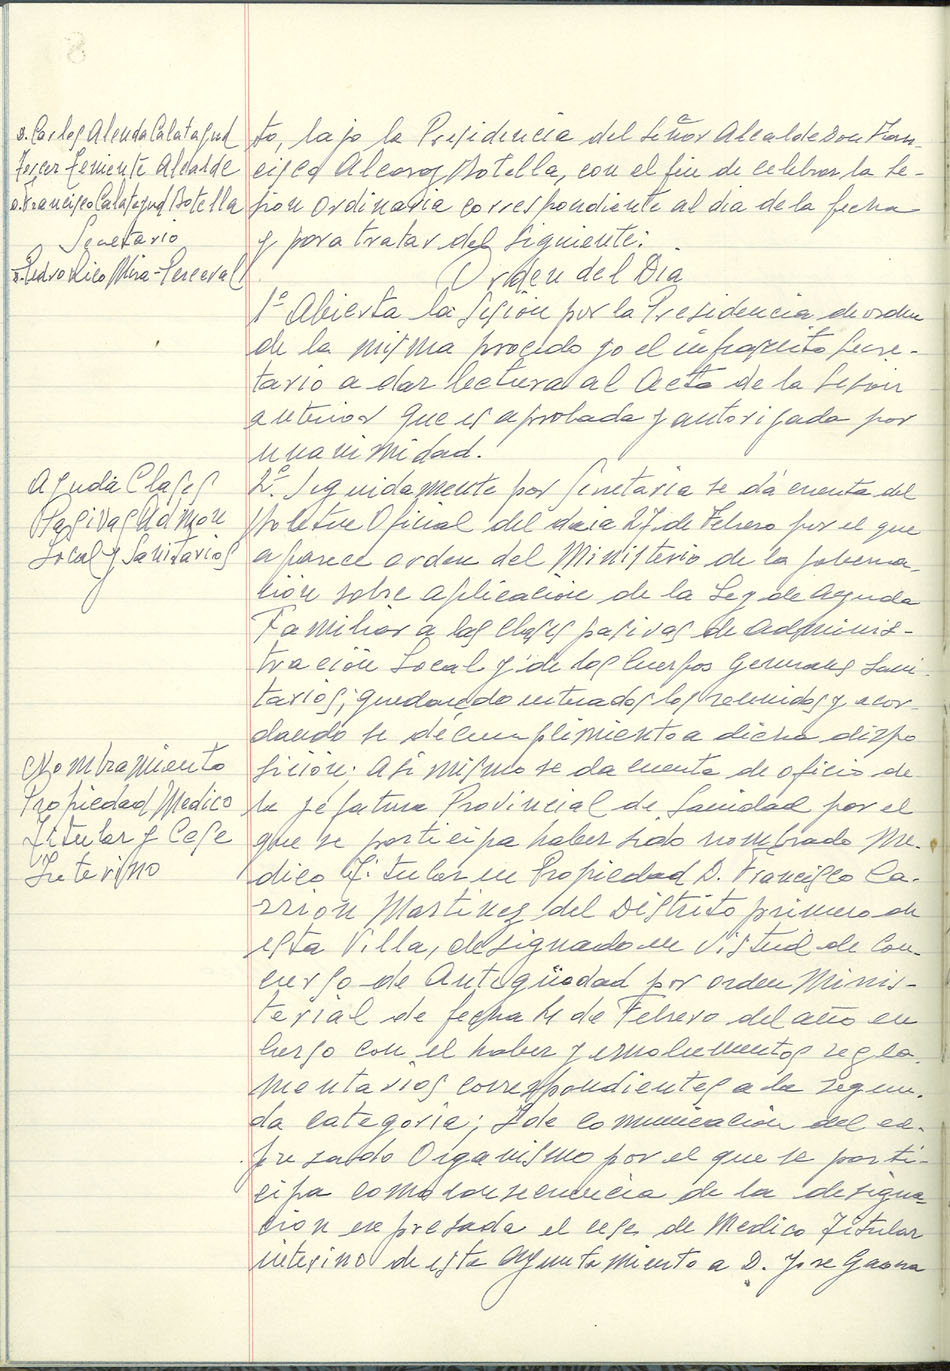 D. Carlos Alenda Calatayud
Tercer Teniente Alcalde
D. Francisco Calatayud Botella
Secretario
D. Pedro Rico Mira-Perceval
to, bajo la Presidencia del Señor Alcalde Don Fran-
cisco Alcaraz Botella, con el fin de celebrar la Se-
sion Ordinaria correspondiente al dia de la fecha
y para tratar del siguiente:
Orden del Dia
1º Abierta la Sesion por la Presidencia de orden
de la misma procedo yo el infrascrito Secre-
tario a dar lectura al Acta de la Sesion
anterior que es aprobada y autorizada por
unanimidad.
Ayuda Clases
Pasivas Admon
Local y Sanitarios
2º. Seguidamente por Secretaria se dá cuenta del
Boletin Oficial del dia 27 de Febrero por el que
aparece orden del Ministerio de la Goberna-
ción sobre aplicación de la Ley de Ayuda
Familiar a las clases pasivas de Adminis-
tración Local y de los Cuerpos Generales Sani-
tarios; quedando enterados los reunidos y acor-
dando se dé cumplimiento a dicha dispo
sición; Asi mismo se da cuenta de oficio de
Nombramiento
Propiedad Medico
Titular y Cese
Interino
la Jefatura Provincial de Sanidad por el
que se participa haber sido nombrado Me-
dico Titular en Propiedad D. Francisco Ca-
rrion Martinez del Distrito primero de
esta Villa, designado en virtud de Con-
curso de Antigüedad por orden Minis-
terial de fecha 4 de Febrero del año en
curso con el haber y emolumentos regla-
mentarios correspondientes a la segun-
da categoria; y de comunicación del ex-
presado Organismo por el que se parti-
cipa como consecuencia de la designa-
cion expresada el cese de Medico Titular
interino de este Ayuntamiento a D. Jose